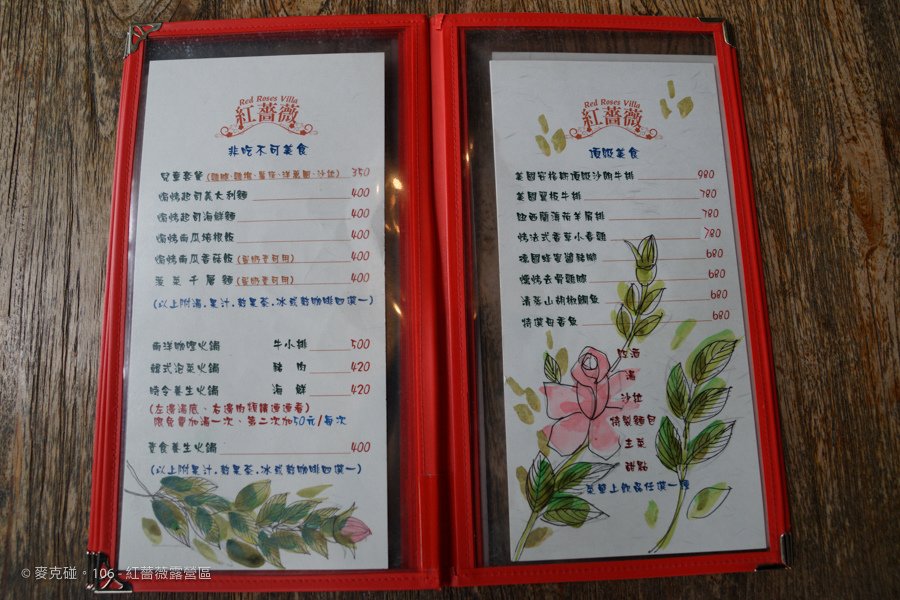 Red Roses Villa
紅薔薇
非吃不可美食
兒童套餐(雞腿.雞塊.薯條.洋蔥圈.沙拉) 350
焗烤起司義大利麵 400
焗烤起司海鮮麵 400
焗烤南瓜燉椒飯 400
焗烤南瓜香菇飯(蛋奶素可用) 400
菠菜千層麵(蛋奶素可用) 400
(以上附湯.果汁.款果茶.冰或熱咖啡四選一)
南洋咖哩火鍋 牛小排 500
韓式泡菜火鍋 豬肉 420
時令養生火鍋 海鮮 420
(左邊湯底、右邊肉類請連連看)
限免費加湯一次、第二次加50元/每次
素食養生火鍋 400
(以上附果汁.款果茶.冰或熱咖啡四選一)
Red Roses Villa
紅薔薇
頂級美食
美國安格斯頂級沙朗牛排 980
美國翼板牛排 780
紐西蘭滑花羊肩排 780
烤法式香草小春雞 780
德國蜂蜜醬豬腳 680
爐烤去骨雞腿 680
清蒸山胡椒鯛魚 680
特選旬香魚 680
餐酒
湯
沙拉
特製麵包
主菜
甜點
菜單上飲品任選一種
© 麥克碰。106 - 紅薔薇露營區